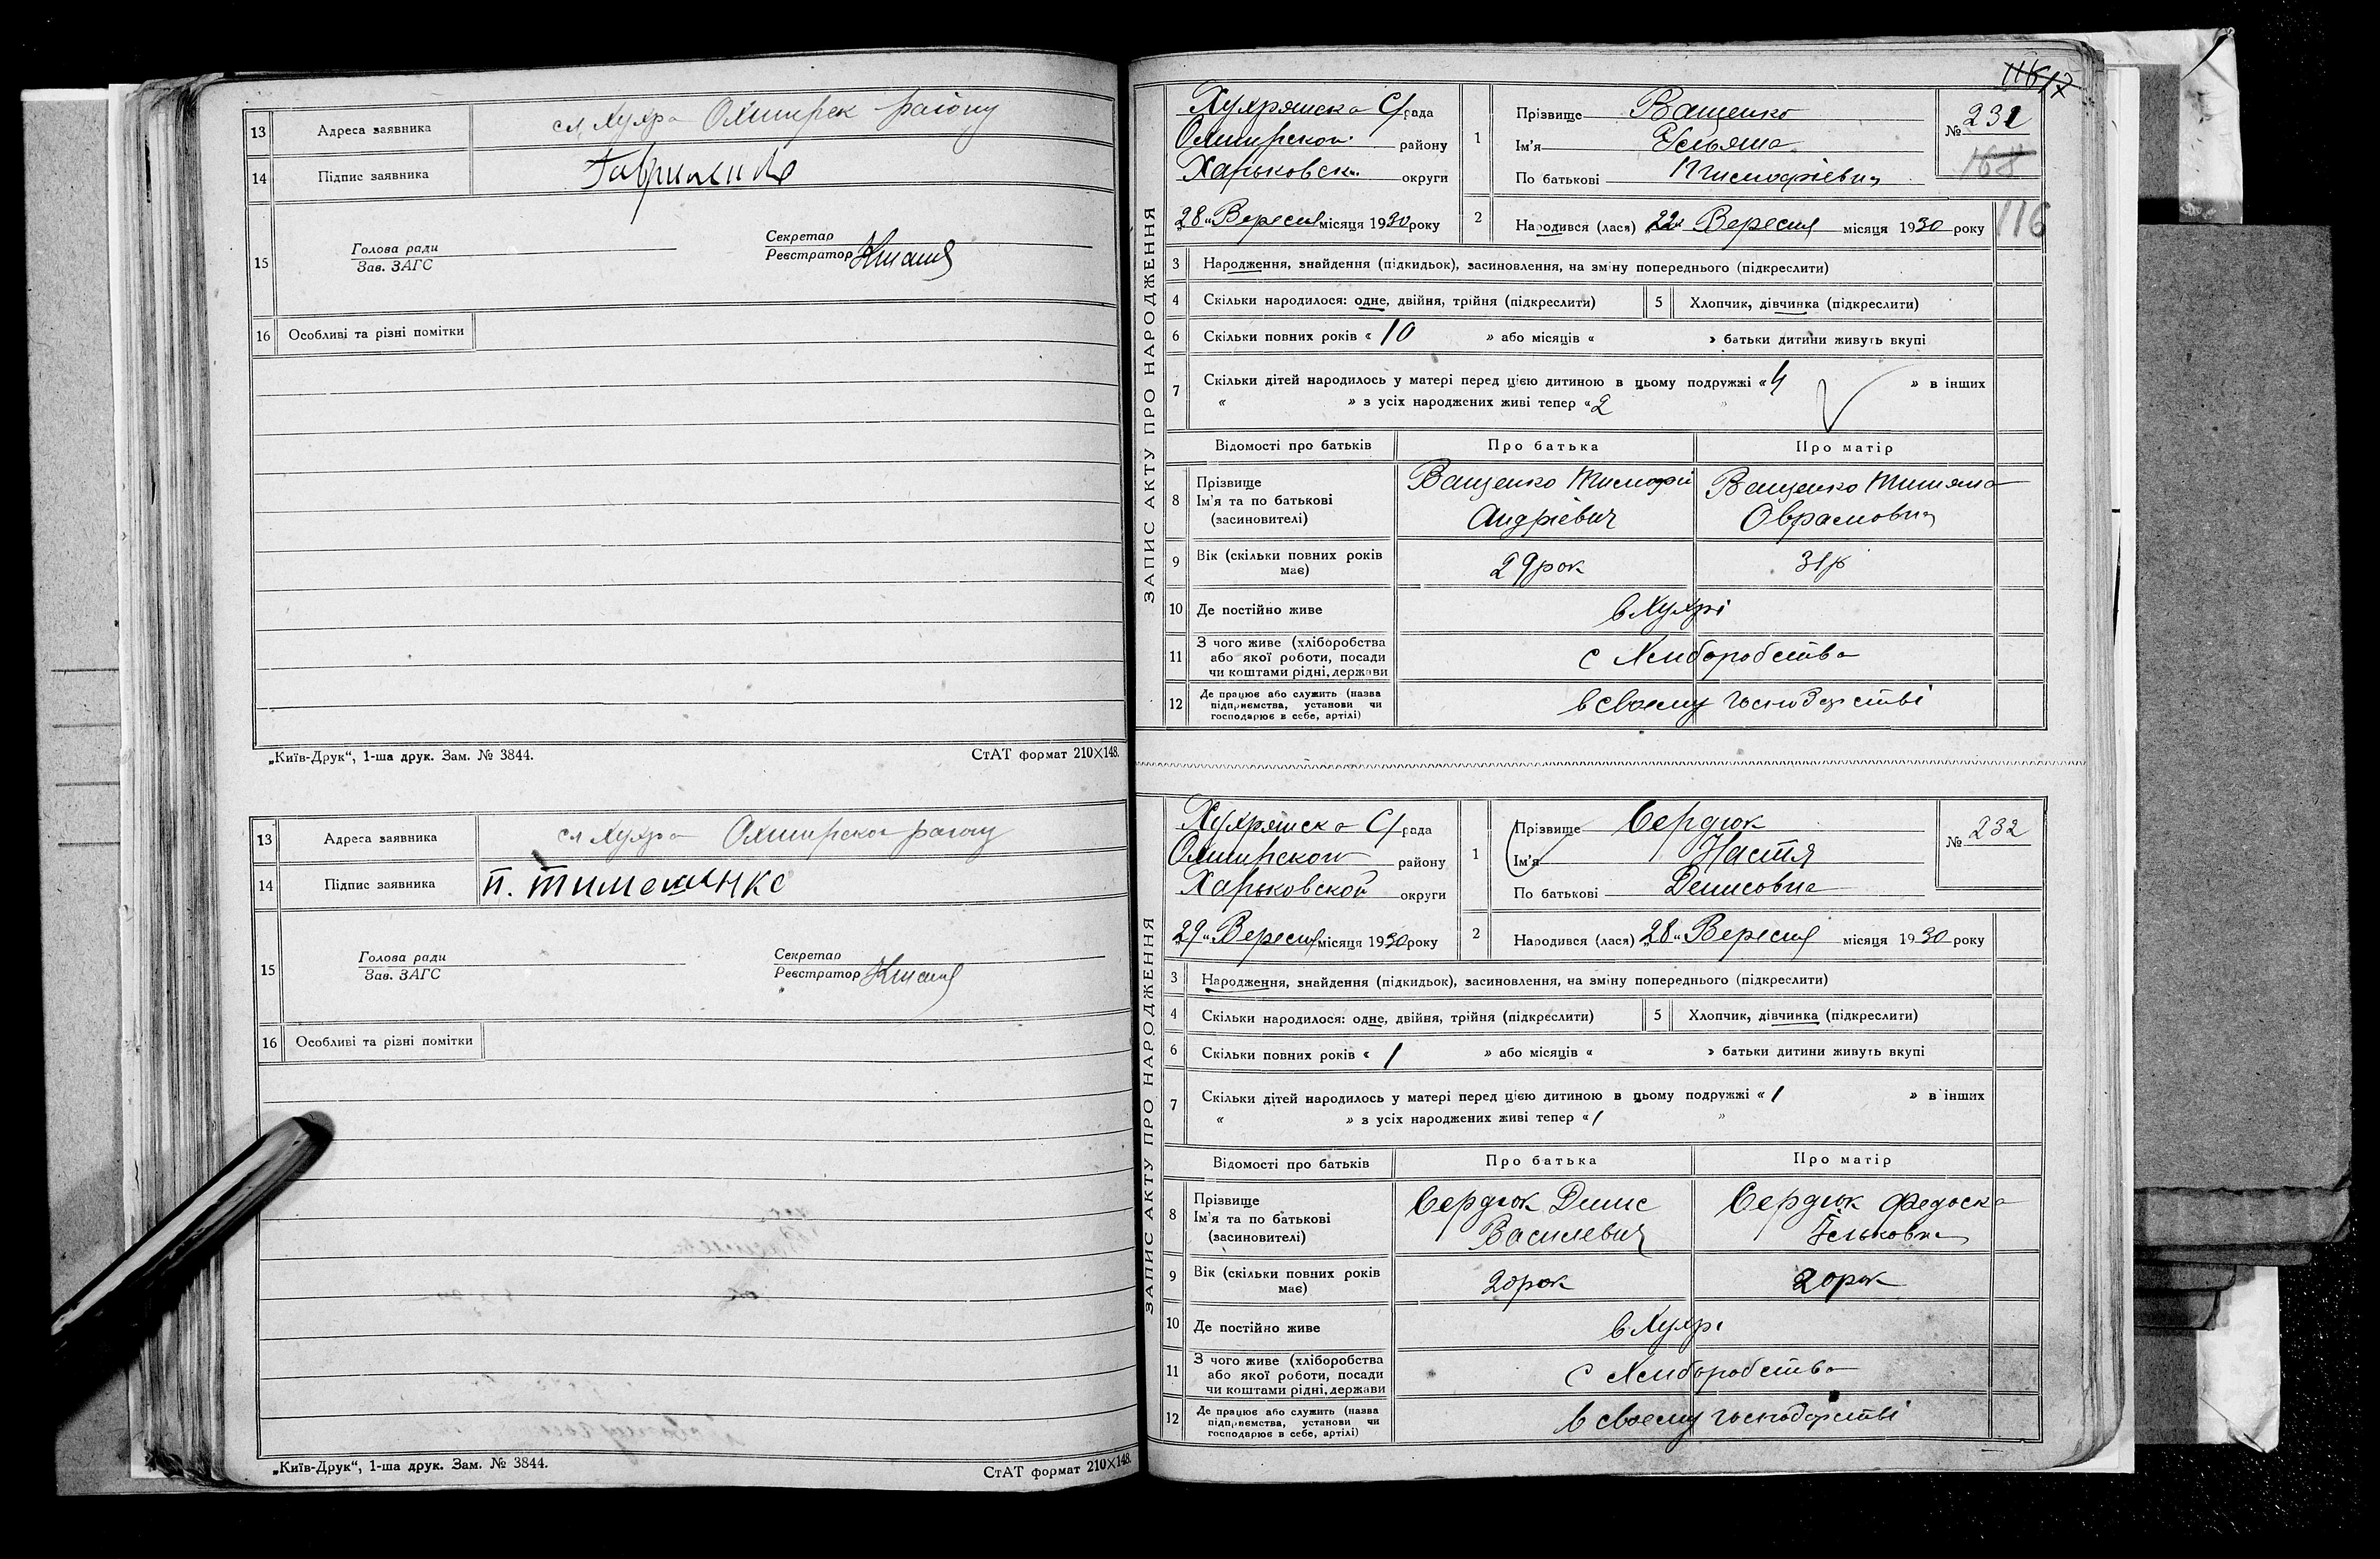 13 Адреса заявника сл Хухра Охтирск району
14 Підпис заявника
15 Голова ради
Зав. ЗАГС
Секретар
Реєстратор
16 Особливі та різні помітки
„Київ-Друк“, 1-ша друк. Зам. № 3844. СтАТ формат 210×148.
13 Адреса заявника сл Хухра Охтирского району
14 Підпис заявника П. Тимошенко
15 Голова ради
Зав. ЗАГС
Секретар
Реєстратор
16 Особливі та різні помітки
„Київ-Друк“, 1-ша друк. Зам. № 3844. СтАТ формат 210×148.
ЗАПИС АКТУ ПРО НАРОДЖЕННЯ
Хухрянска С/рада
Охтирского району
Харьковск округи
„28“ Вересня місяця 1930 року
1 Прізвище Ващенко
Ім'я Уляна
По батькові Тимофіевна
№ 231
168
116
2 Народився (лася) „22“ Вересня місяця 1930 року
3 Народження, знайдення (підкидьок), засиновлення, на зміну попереднього (підкреслити)
4 Скільки народилося: одне, двійня, трійня (підкреслити) 5 Хлопчик, дівчинка (підкреслити)
6 Скільки повних років « 10 » або місяців « » батьки дитини живуть вкупі
7 Скільки дітей народилось у матері перед цією дитиною в цьому подружжі « 4 » в інших
« » з усіх народжених живі тепер « 2 »
Відомості про батьків Про батька Про матір
8 Прізвище
Ім'я та по батькові
(засиновителі)
Ващенко Тимофій
Андріевич
Ващенко Титяна
Оврамовна
9 Вік (скільки повних років має) 29 рок 31 р
10 Де постійно живе в Хухрі
11 З чого живе (хліборобства
або якої роботи, посади
чи коштами рідні, держави
с Хлиборобства
12 Де працює або служить (назва
підприємства, установи чи
господарює в себе, артілі)
в своему господарстві
ЗАПИС АКТУ ПРО НАРОДЖЕННЯ
Хухрянска С/рада
Охтирского району
Харьковской округи
„29“ Вересня місяця 1930 року
1 Прізвище Сердюк
Ім'я Настя
По батькові Денисовна
№ 232
2 Народився (лася) „28“ Вересня місяця 1930 року
3 Народження, знайдення (підкидьок), засиновлення, на зміну попереднього (підкреслити)
4 Скільки народилося: одне, двійня, трійня (підкреслити) 5 Хлопчик, дівчинка (підкреслити)
6 Скільки повних років « 1 » або місяців « » батьки дитини живуть вкупі
7 Скільки дітей народилось у матері перед цією дитиною в цьому подружжі « 1 » в інших
« » з усіх народжених живі тепер « 1 »
Відомості про батьків Про батька Про матір
8 Прізвище
Ім'я та по батькові
(засиновителі)
Сердюк Денис
Василевич
Сердюк Федоска
9 Вік (скільки повних років має) 20 рок 20 рок
10 Де постійно живе в Хухрі
11 З чого живе (хліборобства
або якої роботи, посади
чи коштами рідні, держави
с Хлиборобства
12 Де працює або служить (назва
підприємства, установи чи
господарює в себе, артілі)
в своему господарстві